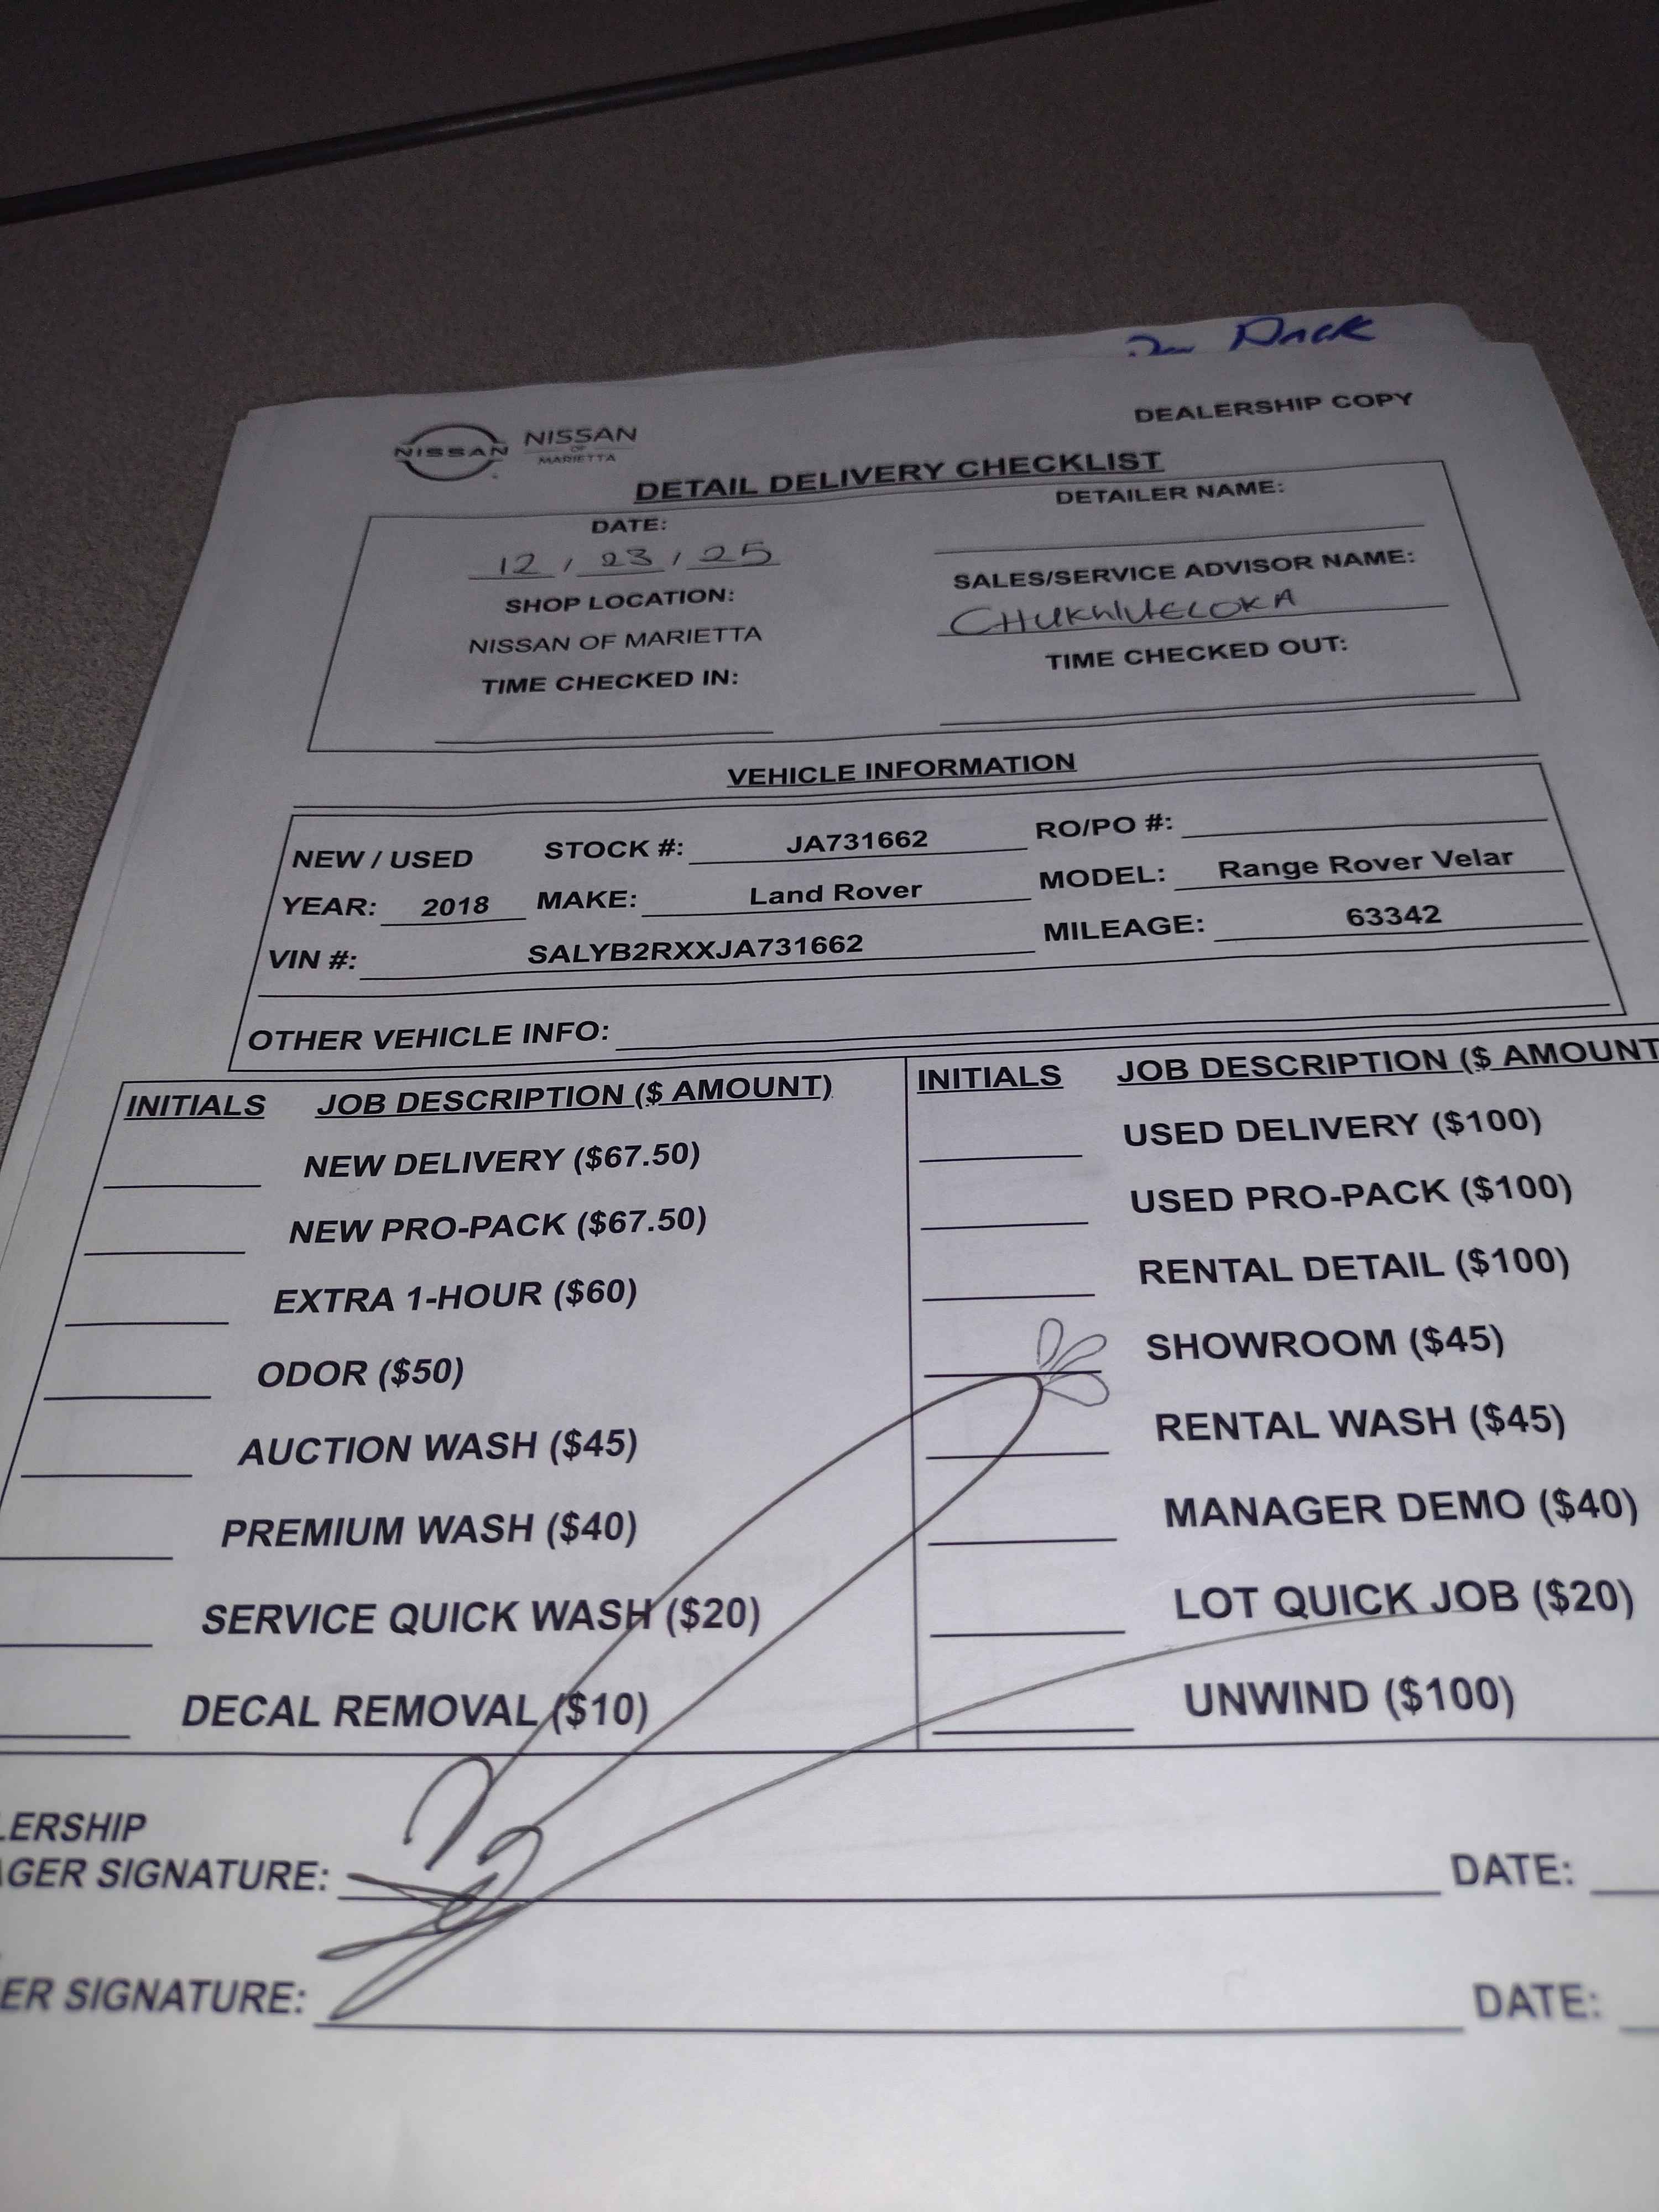 Dack
DEALERSHIP COPY
NISSAN NISSAN
OF
MARIETTA
DETAIL DELIVERY CHECKLIST
DATE: DETAILER NAME:
12 / 23 / 25
SHOP LOCATION: SALES/SERVICE ADVISOR NAME:
NISSAN OF MARIETTA CHUKWUELOKA
TIME CHECKED IN: TIME CHECKED OUT:
VEHICLE INFORMATION
NEW / USED STOCK #: JA731662 RO/PO #:
YEAR: 2018 MAKE: Land Rover MODEL: Range Rover Velar
VIN #: SALYB2RXXJA731662 MILEAGE: 63342
OTHER VEHICLE INFO:
INITIALS JOB DESCRIPTION ($ AMOUNT) INITIALS JOB DESCRIPTION ($ AMOUNT
NEW DELIVERY ($67.50) USED DELIVERY ($100)
NEW PRO-PACK ($67.50) USED PRO-PACK ($100)
EXTRA 1-HOUR ($60) RENTAL DETAIL ($100)
ODOR ($50) SHOWROOM ($45)
AUCTION WASH ($45) RENTAL WASH ($45)
PREMIUM WASH ($40) MANAGER DEMO ($40)
SERVICE QUICK WASH ($20) LOT QUICK JOB ($20)
DECAL REMOVAL ($10) UNWIND ($100)
LERSHIP
AGER SIGNATURE: DATE:
ER SIGNATURE: DATE: